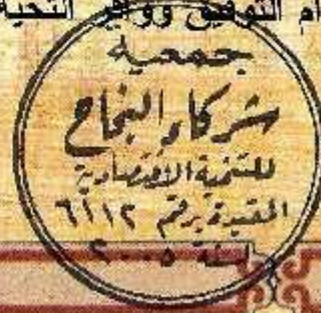 ام التوفيق ووافر التحية
جمعية
شركاء النجاح
للتنمية الاقتصادية
المقيدة برقم ٦١١٢
لسنة ٢٠٠٥